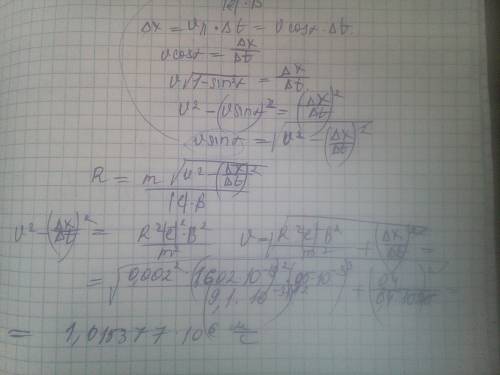 |e|·B
Δx = v_{11}·Δt = v cosα·Δt
v cosα = Δx/Δt
v√(1-sin²α) = Δx/Δt
v² - (v sinα)² = (Δx/Δt)²
v sinα = √(v² - (Δx/Δt)²)
R = m√(v² - (Δx/Δt)²)/(|e|·B)
v² - (Δx/Δt)² = R²|e|²·B²/m² v = √(R²|e|²B²/m² + (Δx/Δt)²) =
= √(0,002² (1602·10
= 1,015377·10⁶ м/с